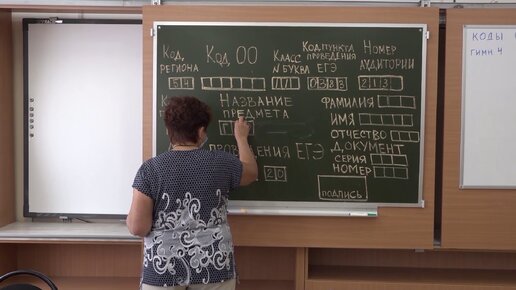 КОД РЕГИОНА
54
КОД ОО
КЛАСС N БУКВА
11
КОД ПУНКТА ПРОВЕДЕНИЯ ЕГЭ
0383
НОМЕР АУДИТОРИИ
213
НАЗВАНИЕ ПРЕДМЕТА
ПРОВЕДЕНИЯ ЕГЭ
20
ФАМИЛИЯ
ИМЯ
ОТЧЕСТВО
ДОКУМЕНТ
СЕРИЯ
НОМЕР
ПОДПИСЬ
КОДЫ
ГИМН 4